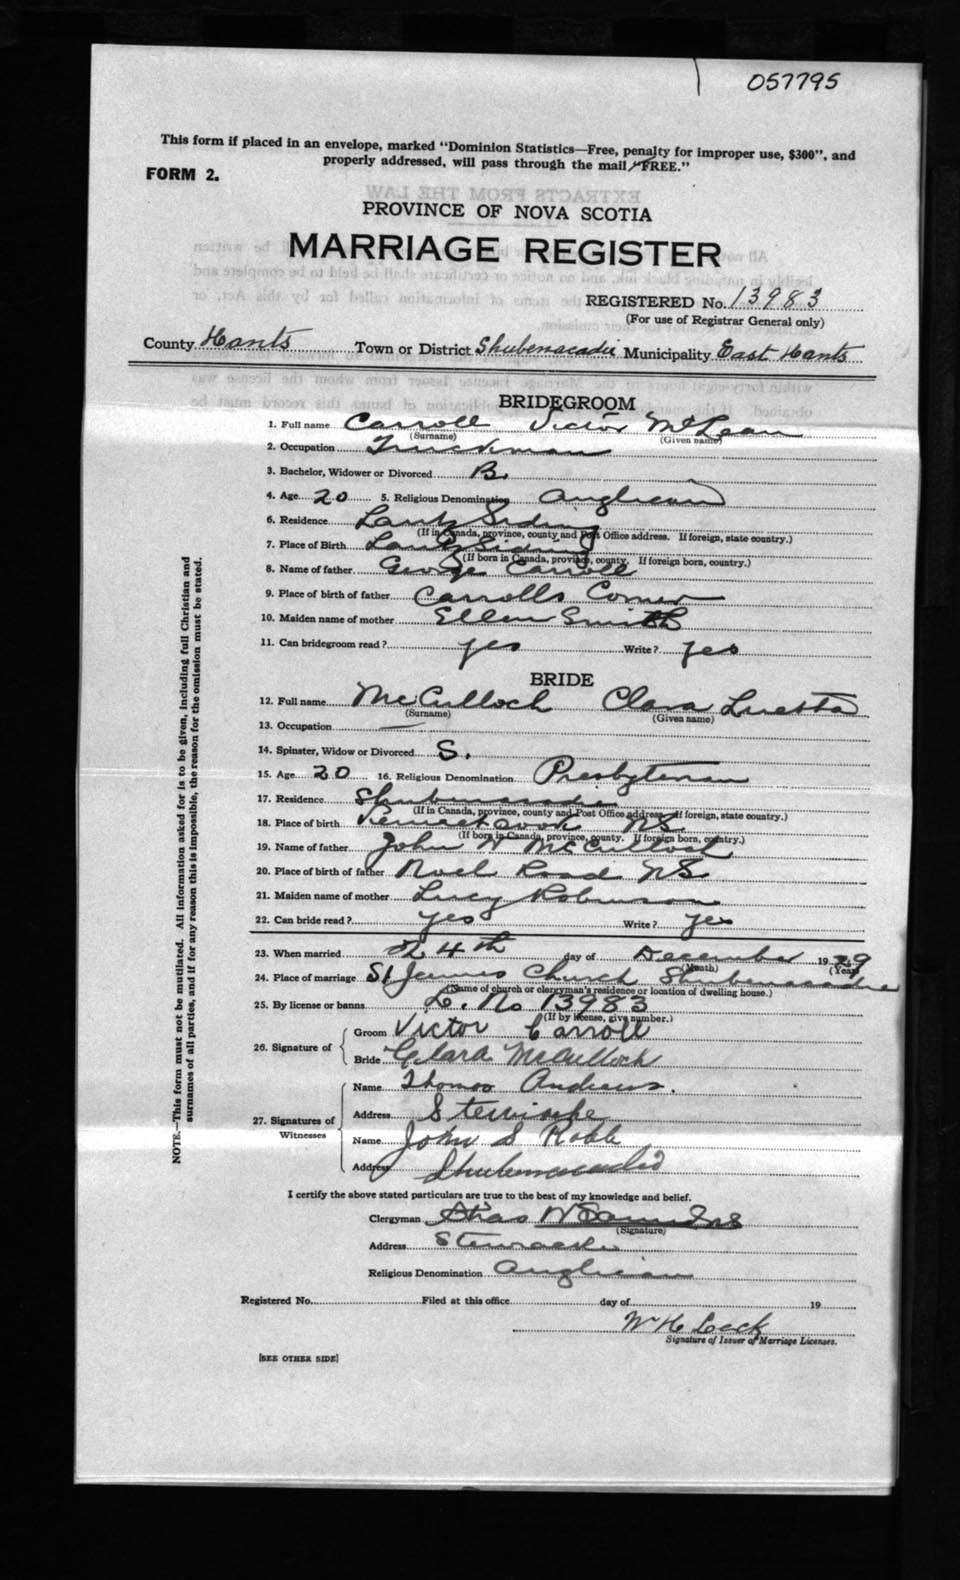 057795
This form if placed in an envelope, marked "Dominion Statistics—Free, penalty for improper use, $300", and
properly addressed, will pass through the mail "FREE."
FORM 2.
PROVINCE OF NOVA SCOTIA
MARRIAGE REGISTER
REGISTERED No. 13983
(For use of Registrar General only)
County Hants Town or District Shubenacadie Municipality East Hants
BRIDEGROOM
1. Full name Carroll Victor McLean
(Surname) (Given name)
2. Occupation Truckman
3. Bachelor, Widower or Divorced B.
4. Age 20 5. Religious Denomination Anglican
6. Residence Lantz Siding
(If in Canada, province, county and Post Office address. If foreign, state country.)
7. Place of Birth Lantz Siding
(If born in Canada, province, county. If foreign born, country.)
8. Name of father George Carroll
9. Place of birth of father Carrolls Corner
10. Maiden name of mother Ellen Smith
11. Can bridegroom read? yes Write? yes
BRIDE
12. Full name McCulloch Clara Luetta
(Surname) (Given name)
13. Occupation —
14. Spinster, Widow or Divorced S.
15. Age 20 16. Religious Denomination Presbyterian
17. Residence Shubenacadie
(If in Canada, province, county and Post Office address. If foreign, state country.)
18. Place of birth Kennetcook NS
(If born in Canada, province, county. If foreign born, country.)
19. Name of father John W McCulloch
20. Place of birth of father Noel Road NS
21. Maiden name of mother Lucy Robinson
22. Can bride read? yes Write? yes
23. When married 24th day of December 1929
(Month) (Year)
24. Place of marriage St James Church Shubenacadie
(Name of church or clergyman's residence or location of dwelling house.)
25. By license or banns L. No 13983
(If by license, give number.)
26. Signature of
Groom Victor Carroll
Bride Clara McCulloch
27. Signatures of Witnesses
Name Thomas Andrews.
Address
Name John S Robb
Address Shubenacadie
I certify the above stated particulars are true to the best of my knowledge and belief.
Clergyman Chas W
(Signature)
Address Stewiacke
Religious Denomination Anglican
Registered No. Filed at this office day of 19
W H Leck
Signature of Issuer of Marriage Licenses.
[SEE OTHER SIDE]
NOTE.—This form must not be mutilated. All information asked for is to be given, including full Christian and
surnames of all parties, and if for any reason this is impossible, the reason for the omission must be stated.